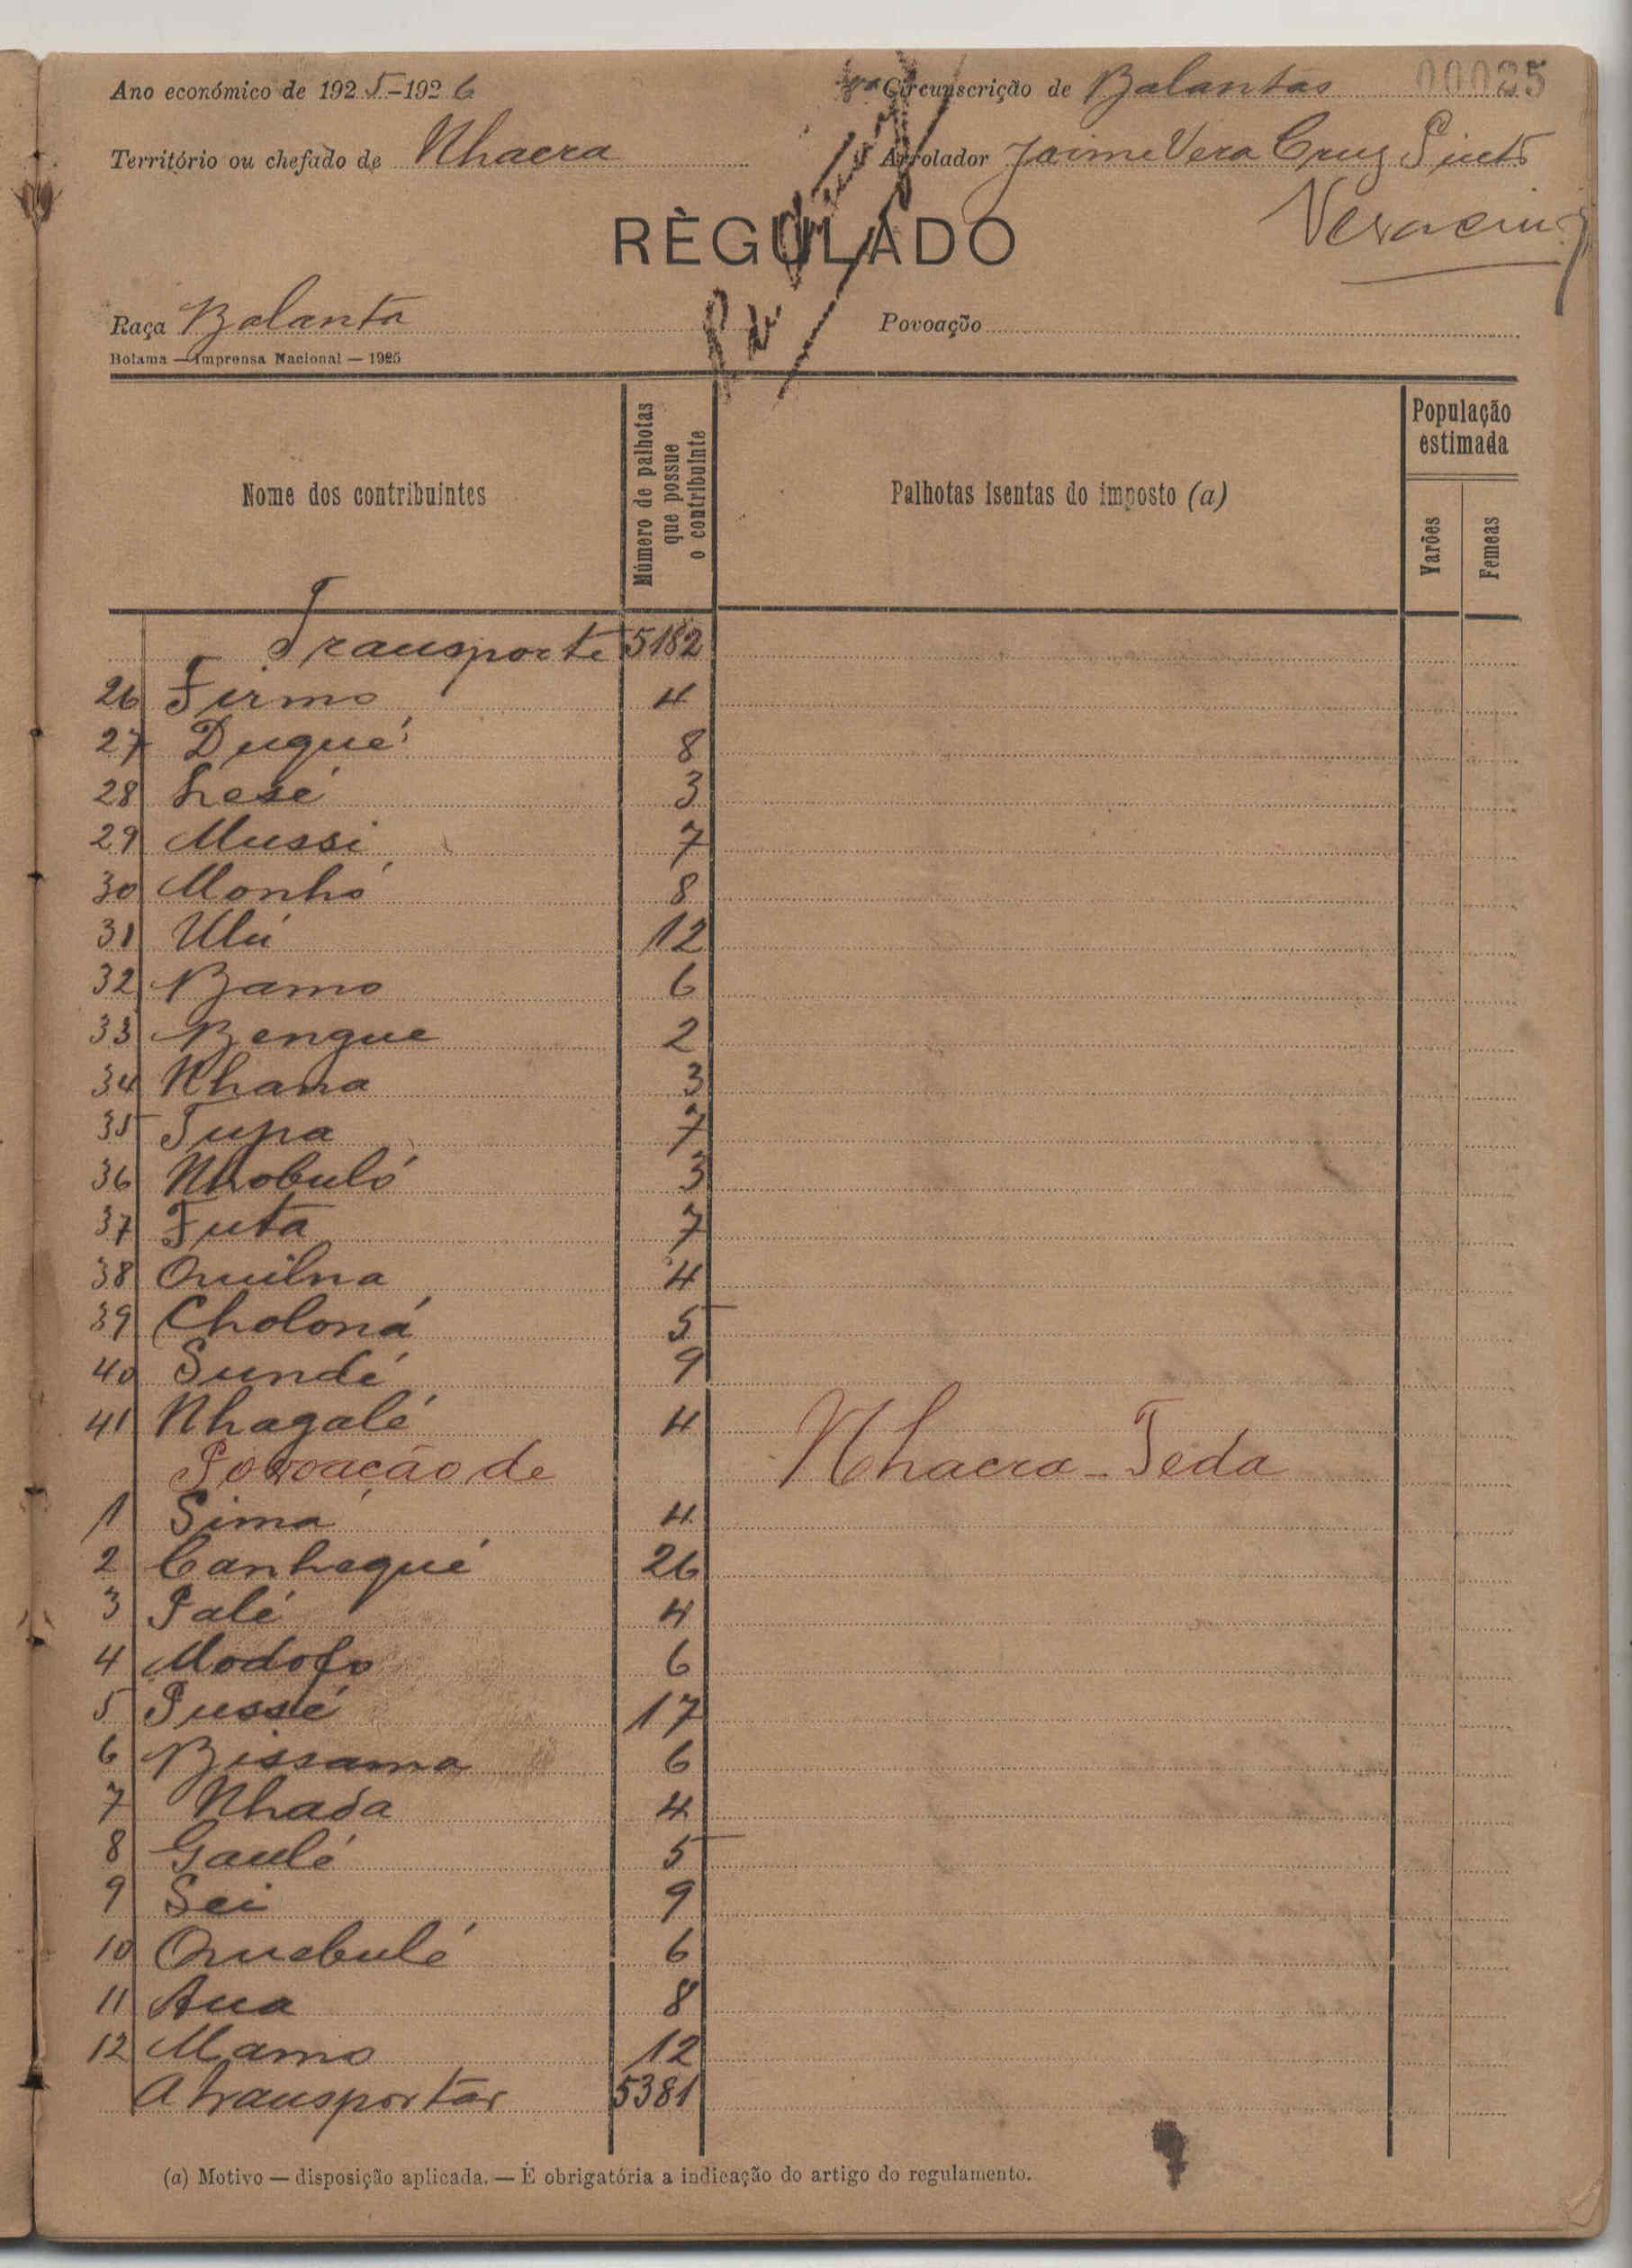 Ano económico de 1925-1926
Circunscrição de Balantas 00085
Território ou chefado de Nhacra
Arrolador Jaime Vera Cruz Pinto
Veracruz
RÈGULADO
Raça Balanta
Povoação
Bolama — Imprensa Nacional — 1925
Nome dos contribuintes
Número de palhotas que possue o contribuinte
Palhotas isentas do imposto (a)
População estimada
Varões
Femeas
Transporte 5182
26 Firmo 4
27 Dugué 8
28 Lesé 3
29 Mussi 7
30 Monhó 8
31 Ulú 12
32 Bamo 6
33 Bengue 2
34 Nhana 3
35 Tupa 7
36 Nhobuló 3
37 Futa 7
38 Quilna 4
39 Choloná 5
40 Sundé 9
41 Nhagalé 4
Povoação de Nhacra-Teda
1 Sima 4
2 Canhequé 26
3 Palé 4
4 Modofo 6
5 Pussé 17
6 Bissama 6
7 Nhada 4
8 Gaulé 5
9 Sei 9
10 Quebulé 6
11 Aua 8
12 Mamo 12
A transportar 5381
(a) Motivo — disposição aplicada. — É obrigatória a indicação do artigo do regulamento.